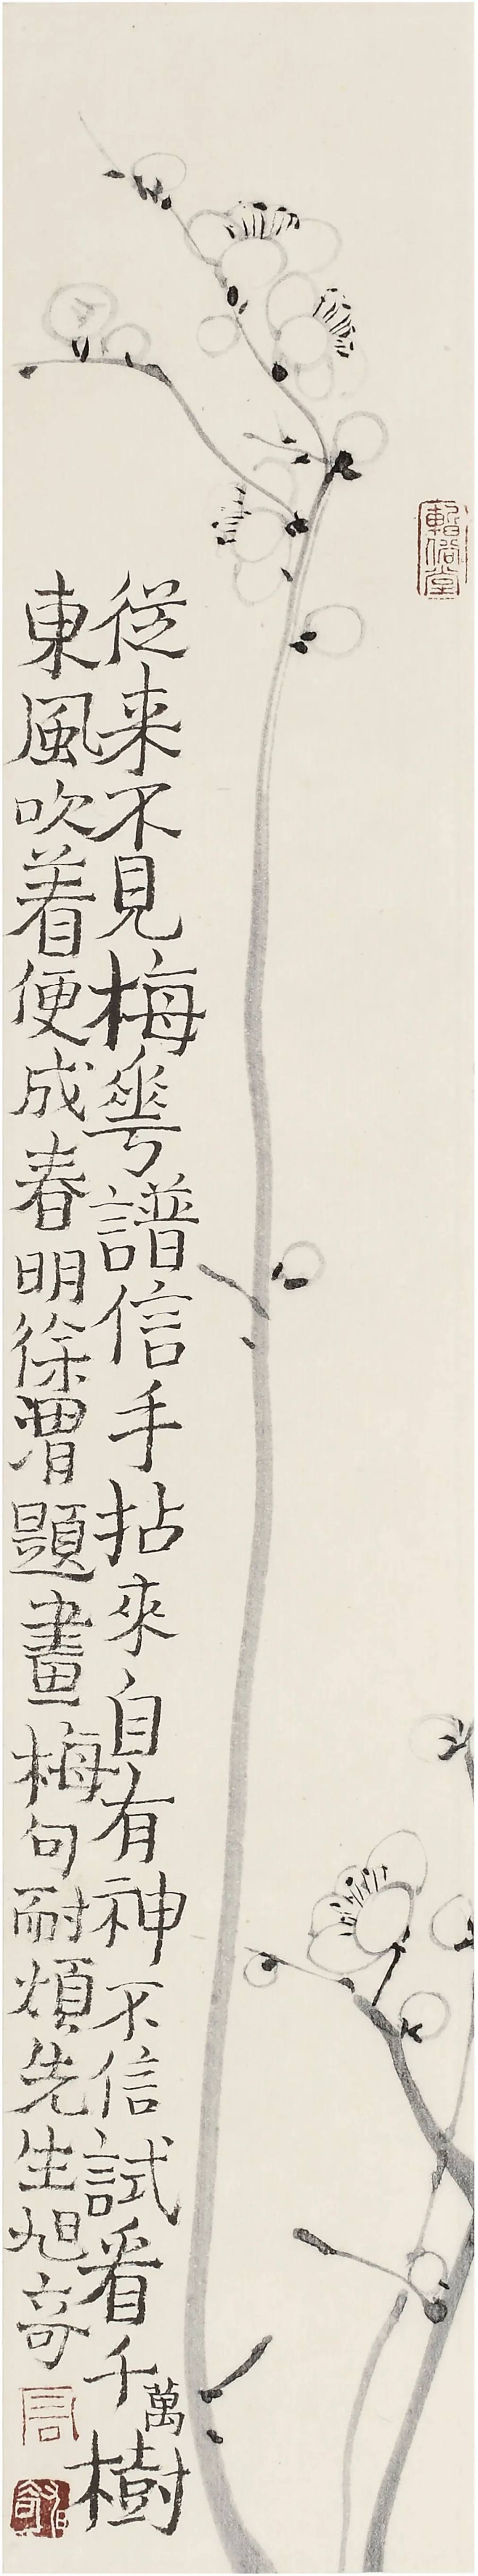 暫俗堂
従来不見梅華譜信手拈來自有神不信試看千萬樹
東風吹着便成春明徐渭題畫梅句耐煩先生旭奇